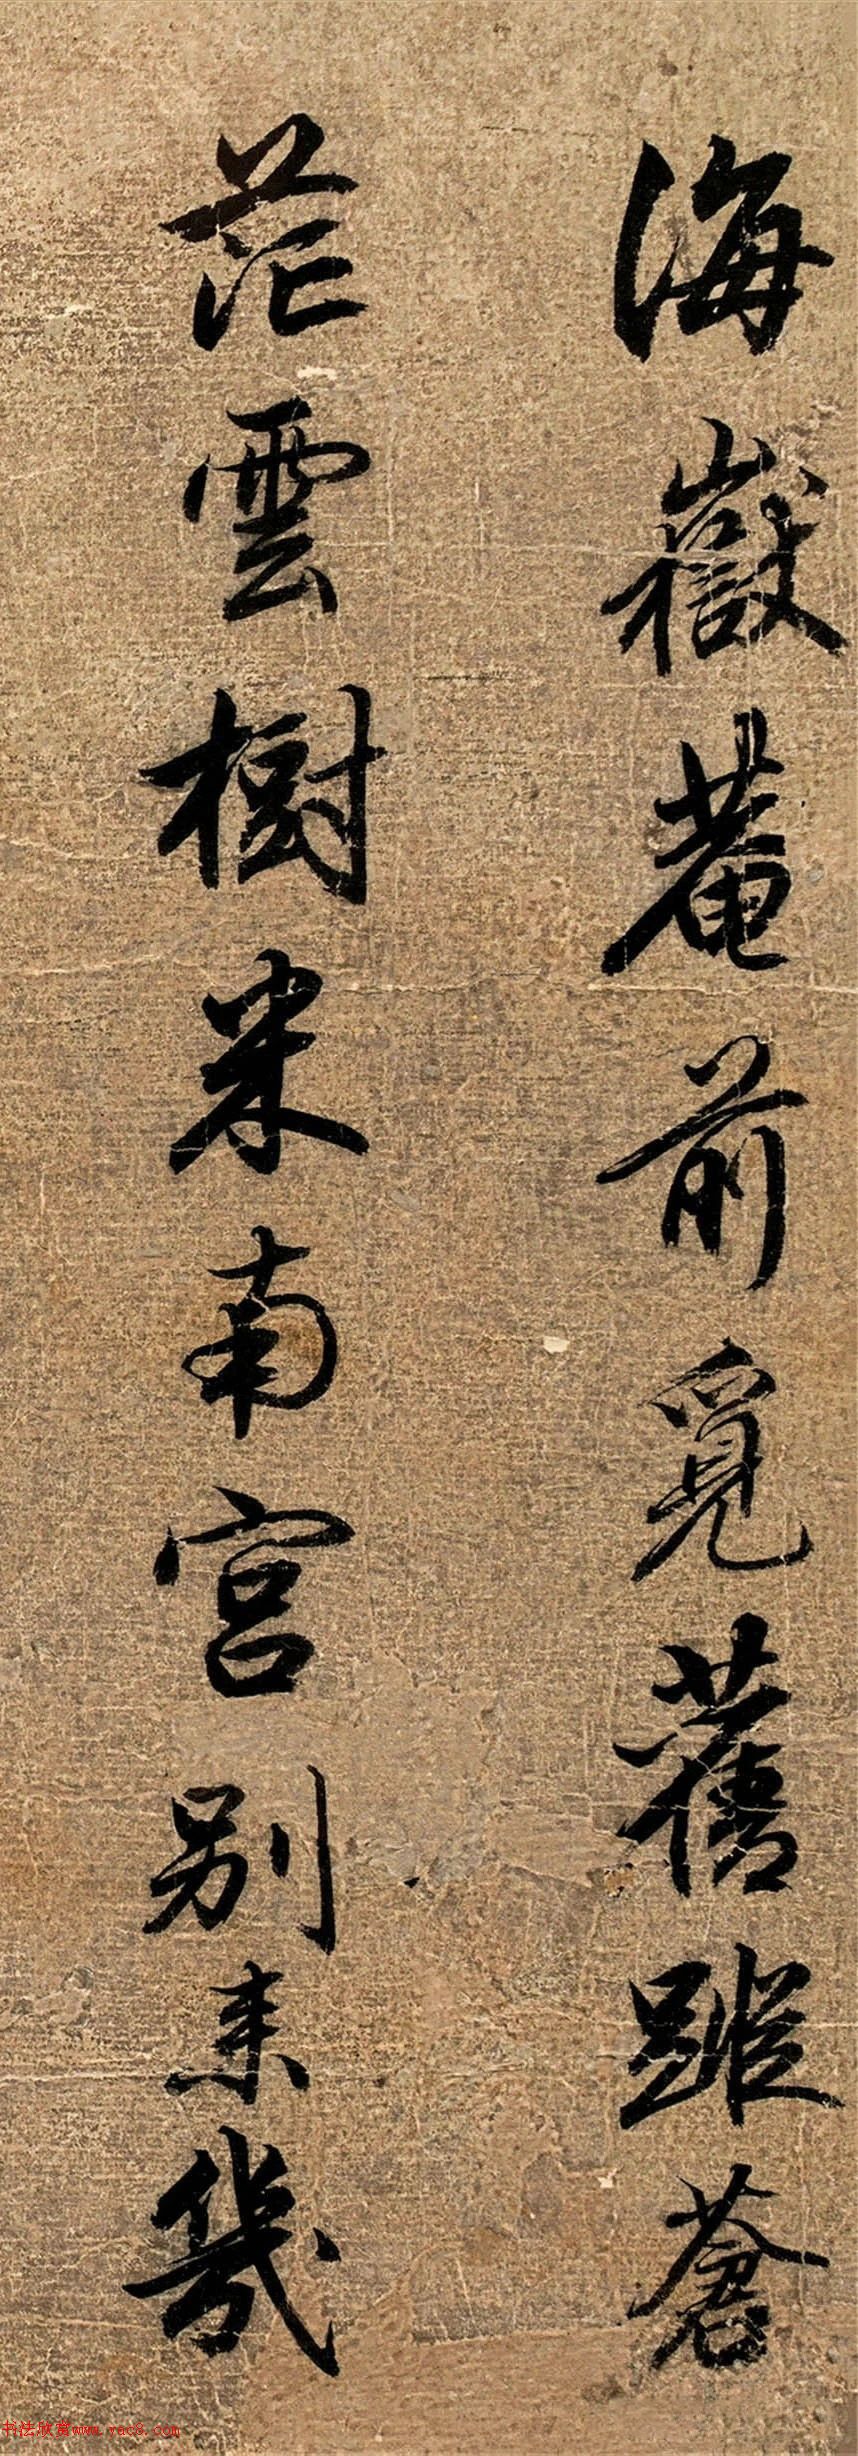 海嶽菴前覓舊蹤蒼
茫雲樹米南宮別來幾
书法欣赏www.yac8.com